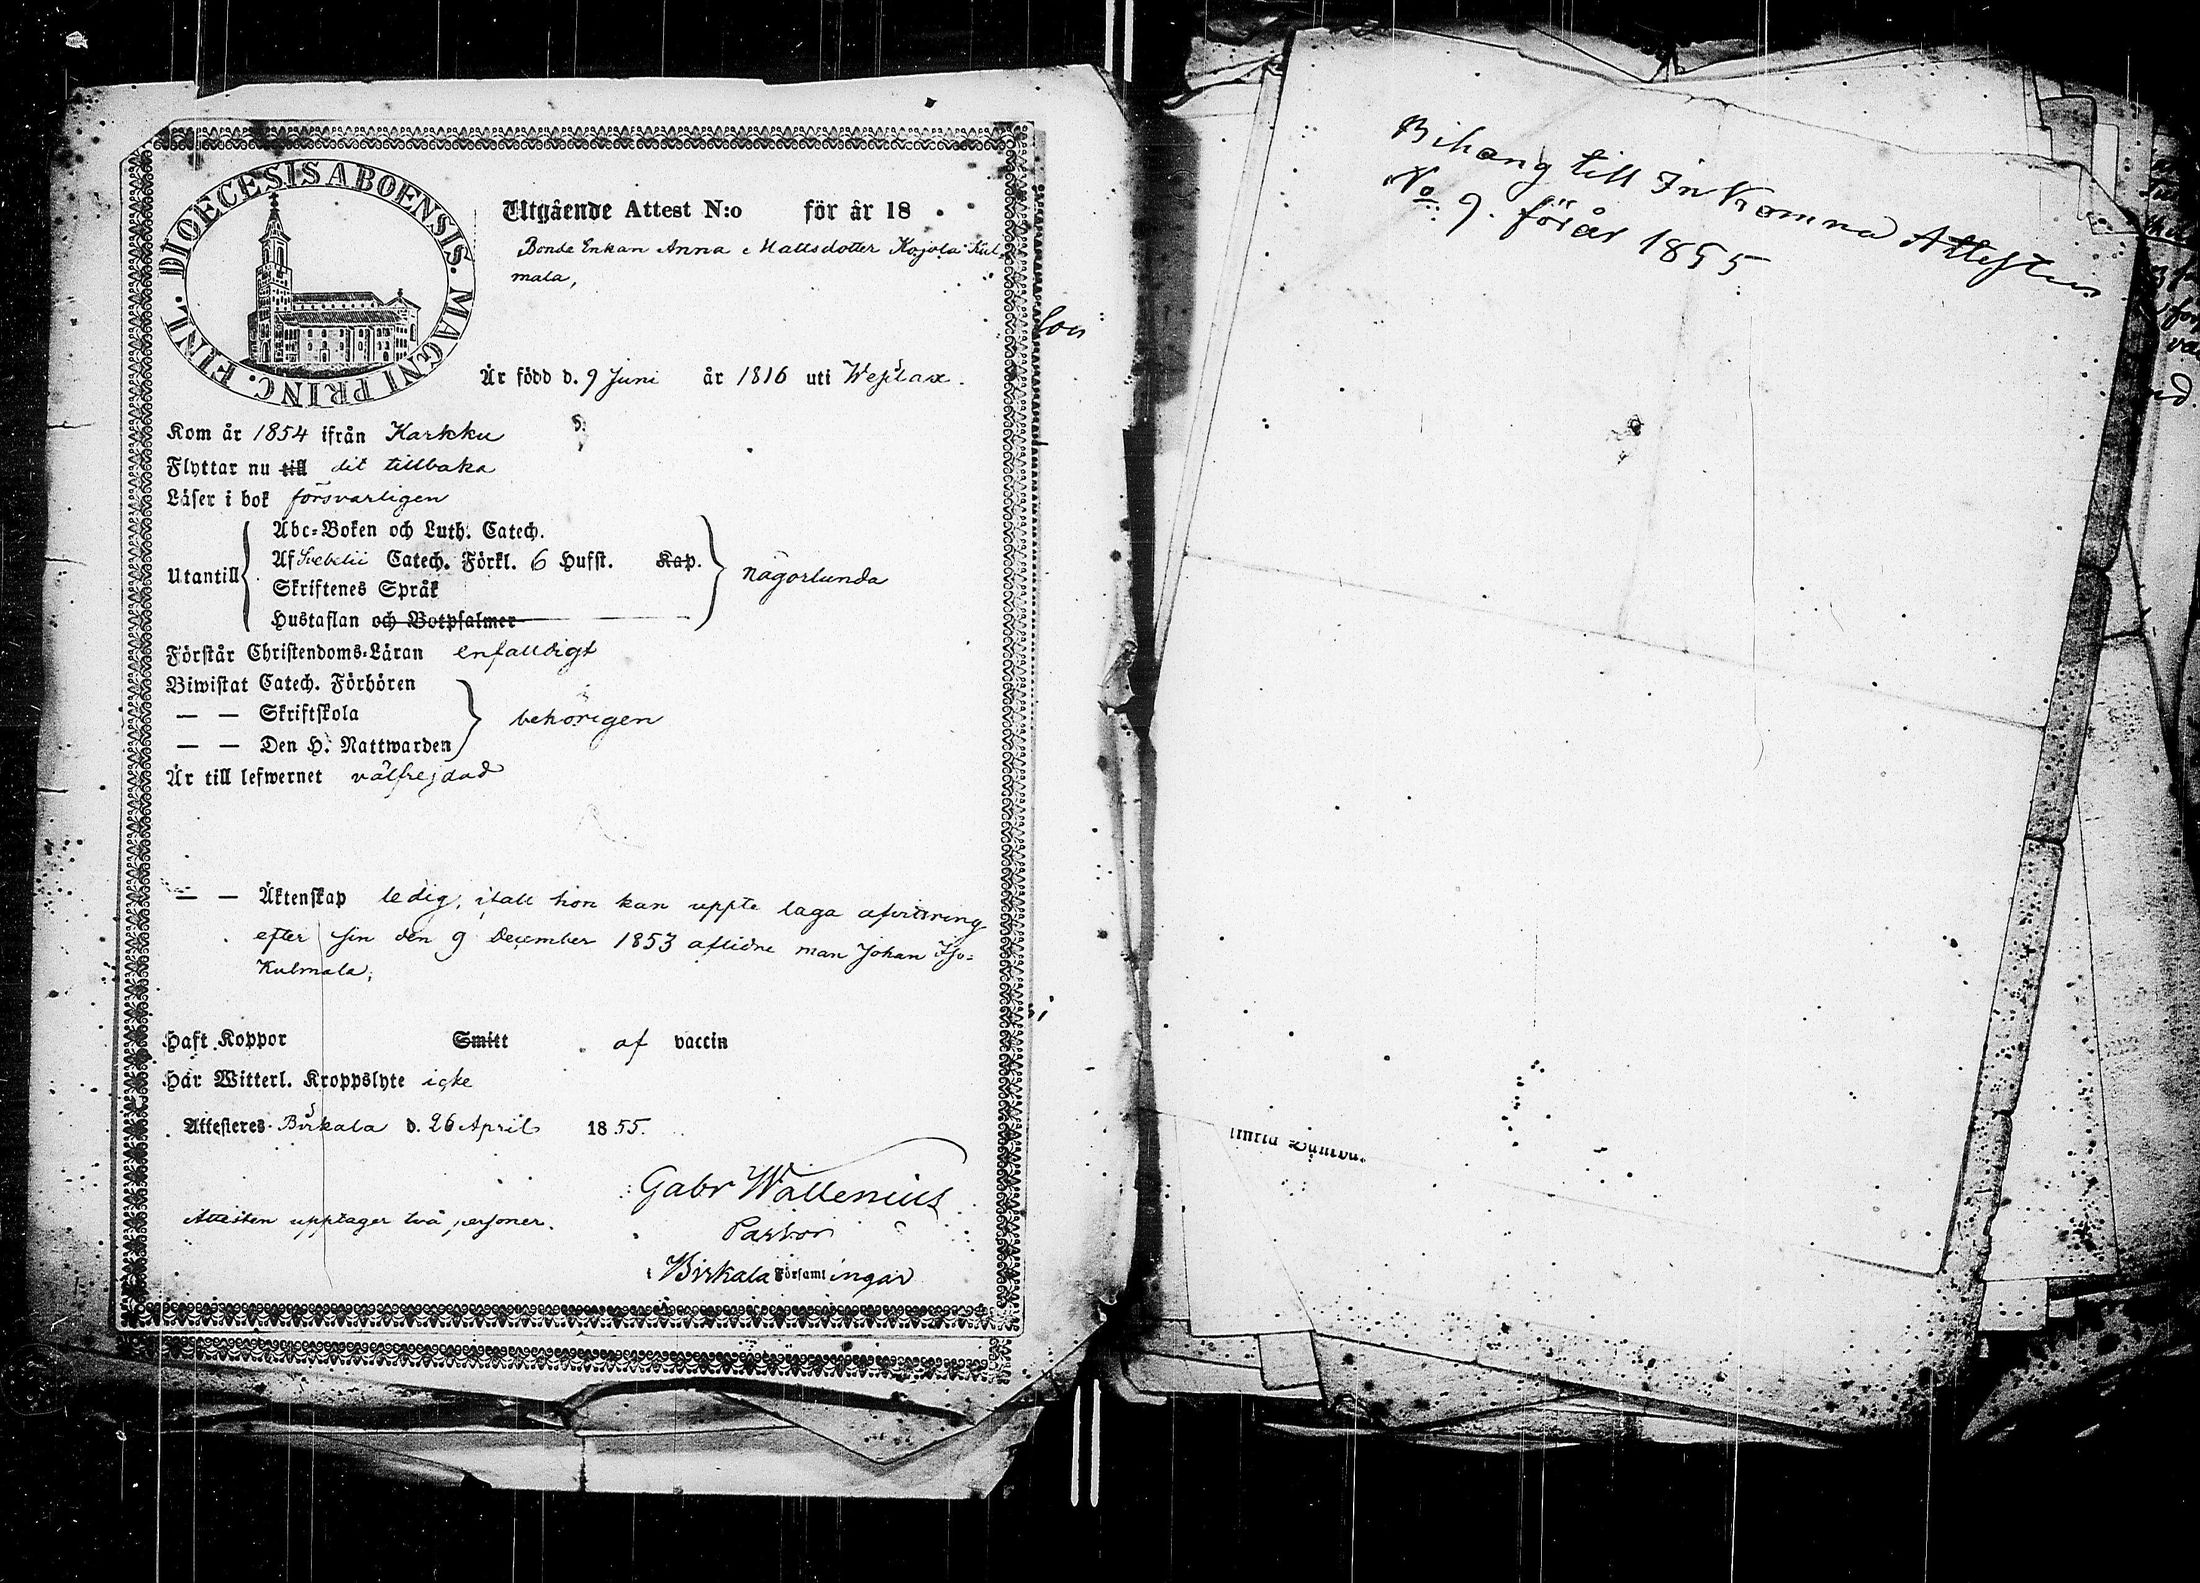 DIOECESIS ABOENSIS. MAGNI PRINC. FINL.
Utgående Attest N:o för år 18
Bonde Enkan Anna Mattsdotter Kojola Kul-
mala,
Är född d. 9 Juni år 1816 uti Westlax.
Kom år 1854 ifrån Karkku
Flyttar nu till dit tillbaka
Läser i bok försvarligen
Abc-Boken och Luth. Catech.
Utantill Af Svebelii Catech. Förkl. 6 Hufst. Kap. någorlunda
Skriftenes Språk
Hustaflan och Botpsalmer
Förstår Christendoms-Läran enfaldigt
Biwistat Catech. Förhören
— — Skriftskola behörigen
— — Den H. Nattwarden
Är till lefwernet välfrejdad
— — Äktenskap ledig, ifall hon kan uppte laga afvittring
efter sin den 9 December 1853 aflidne man Johan Iso-
Kulmala;
Haft Koppor Smitt af vaccin
Har Witterl. Kroppslyte icke
Attesteras Birkala d. 26 April 1855.
Gabr Wallenius
Attesten upptager två personer.
Pastor
i Birkala Församlingar
Bihang till Inkomna Attesten
No 9. för år 1855